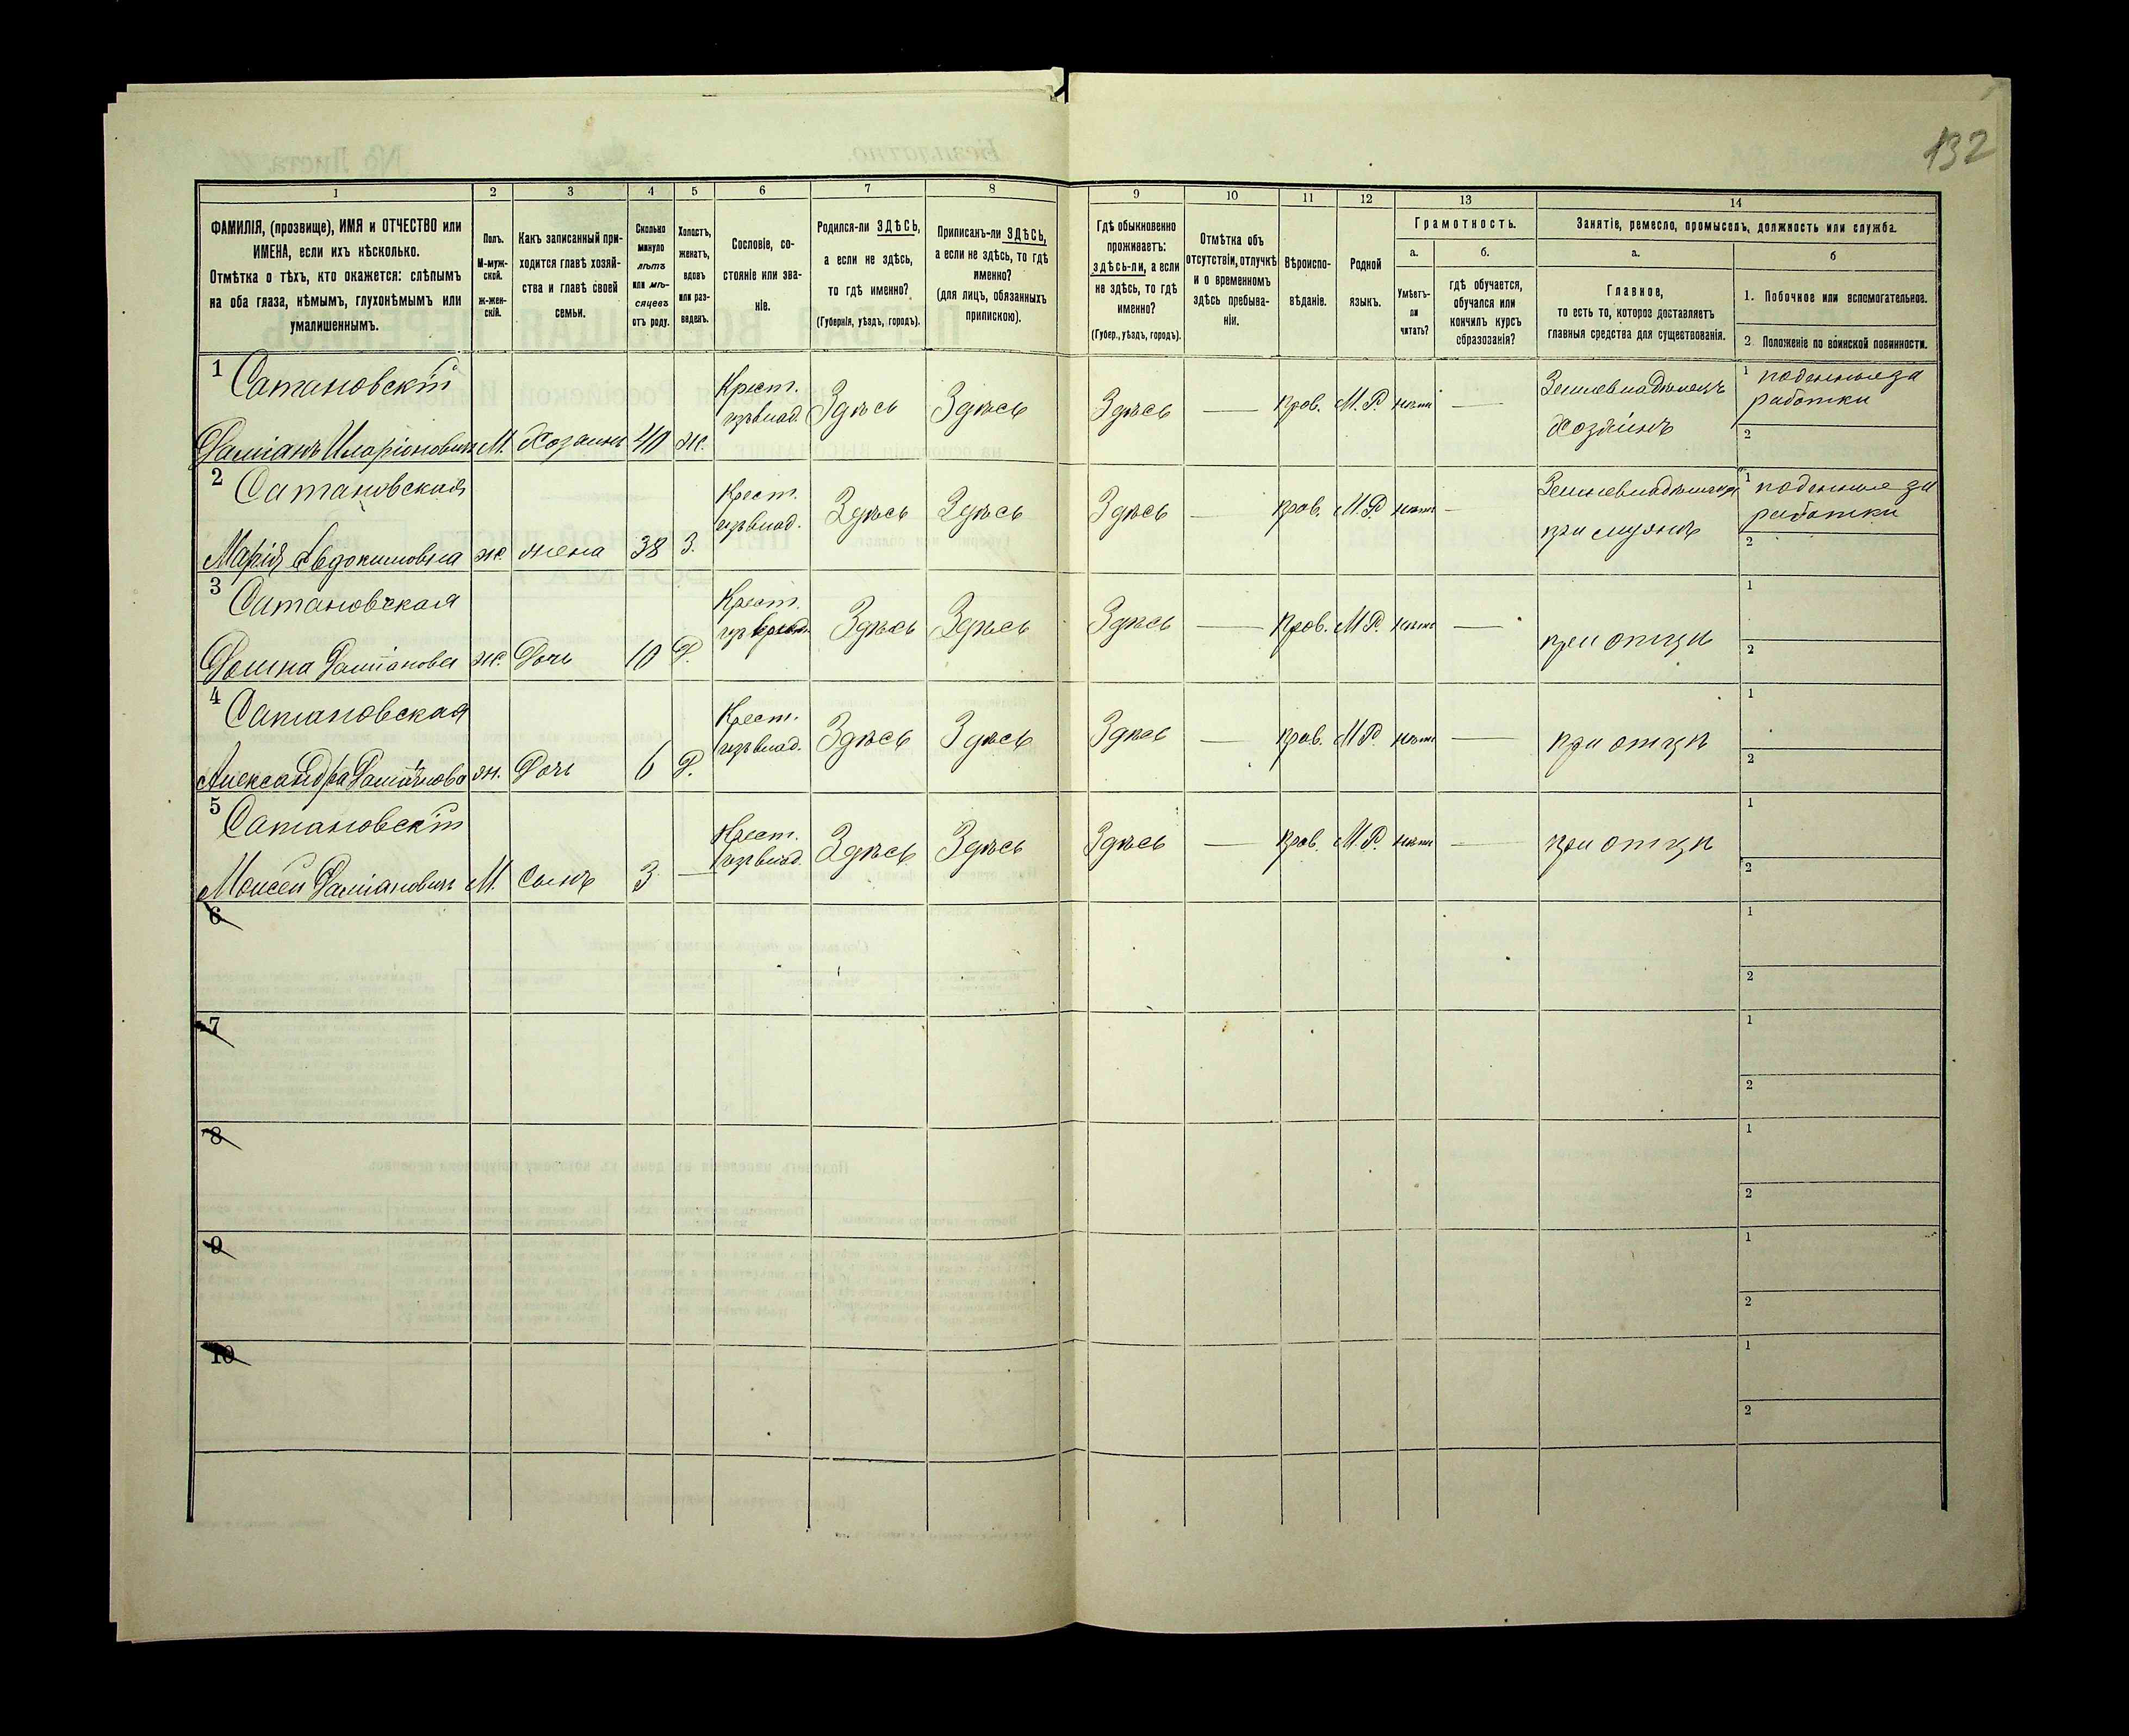 132
1 2 3 4 5 6 7 8 9 10 11 12 13 14
ФАМИЛІЯ, (прозвище), ИМЯ и ОТЧЕСТВО или
ИМЕНА, если ихъ нѣсколько.
Отмѣтка о тѣхъ, кто окажется: слѣпымъ
на оба глаза, нѣмымъ, глухонѣмымъ или
умалишеннымъ.
Полъ.
М-муж-
ской.
ж-жен-
скій.
Какъ записанный при-
ходится главѣ хозяй-
ства и главѣ своей
семьи.
Сколько
минуло
лѣтъ
или мѣ-
сяцевъ
отъ роду.
Холостъ,
женатъ,
вдовъ
или раз-
веденъ.
Сословіе, со-
стояніе или зва-
ніе.
Родился-ли ЗДѢСЬ,
а если не здѣсь,
то гдѣ именно?
(Губернія, уѣздъ, городъ).
Приписанъ-ли ЗДѢСЬ,
а если не здѣсь, то гдѣ
именно?
(для лицъ, обязанныхъ
припискою).
Гдѣ обыкновенно
проживаетъ:
здѣсь-ли, а если
не здѣсь, то гдѣ
именно?
(Губер., уѣздъ, городъ).
Отмѣтка объ
отсутствіи, отлучкѣ
и о временномъ
здѣсь пребыва-
ніи.
Вѣроиспо-
вѣданіе.
Родной
языкъ.
Грамотность.
а.
Умѣетъ-
ли
читать?
б.
гдѣ обучается,
обучался или
кончилъ курсъ
образованія?
Занятіе, ремесло, промыселъ, должность или служба.
а.
Главное,
то есть то, которое доставляетъ
главныя средства для существованія.
б
1. Побочное или вспомогательное.
2 Положеніе по воинской повинности.
1 Сатановскій
Даміанъ Иларіоновичъ М. Хозяинъ 40 Ж. Крест. изъ влад. Здѣсь Здѣсь Здѣсь — Прав. М.Р. нѣтъ — Землевладѣлецъ
Хозяинъ
1 поденные за
работки
2
2 Сатановская
Марія Авдокимовна Ж. Жена 38 З. Крест. изъ влад. Здѣсь Здѣсь Здѣсь — Прав. М.Р. нѣтъ —
при мужѣ
1 поденные за
работки
2
3 Сатановская
Даміанова Ж. Дочь 10 Д. Крест. Здѣсь Здѣсь Здѣсь — Прав. М.Р. нѣтъ — при отцѣ
1
2
4 Сатановская
Александра Даміанова Ж. Дочь 6 Д. Крест. изъ влад. Здѣсь Здѣсь Здѣсь — Прав. М.Р. нѣтъ — при отцѣ
1
2
5 Сатановскій
Моисей Даміановичъ М. Сынъ 3 — Крест. изъ влад. Здѣсь Здѣсь Здѣсь — Прав. М.Р. нѣтъ — при отцѣ
1
2
6
1
2
7
1
2
8
1
2
9
1
2
10
1
2